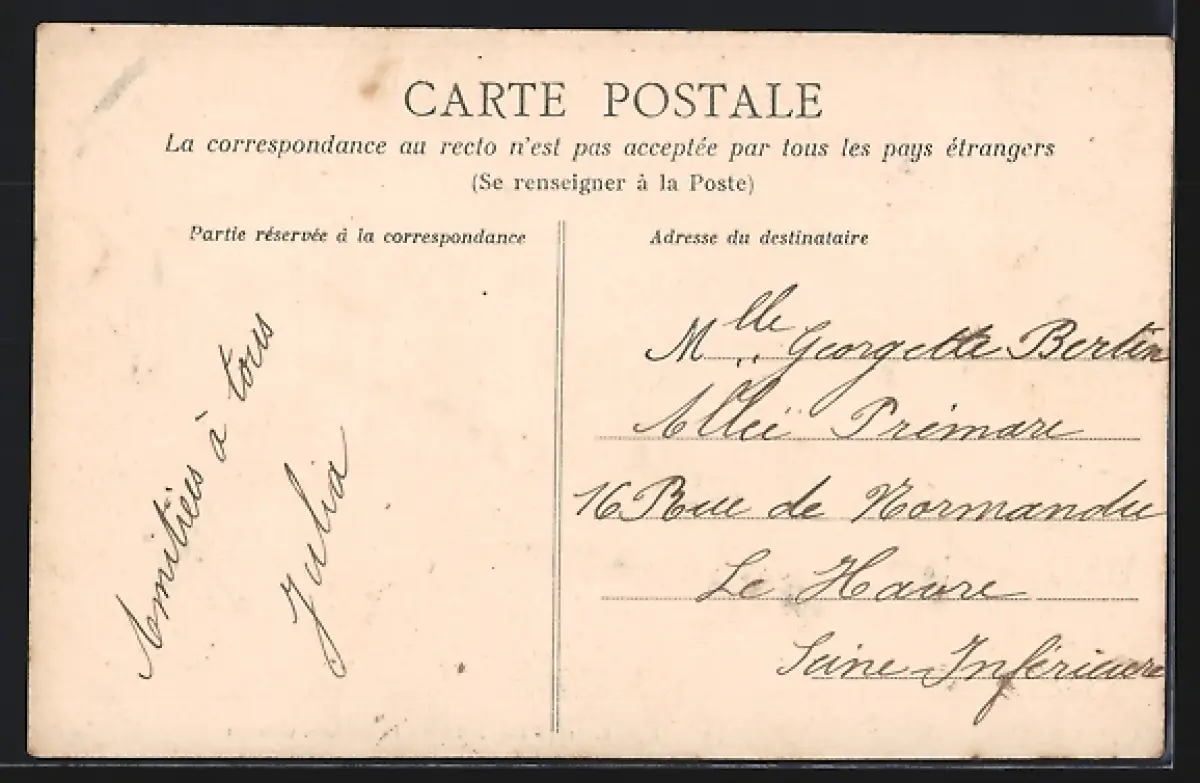 CARTE POSTALE
La correspondance au recto n'est pas acceptée par tous les pays étrangers
(Se renseigner à la Poste)
Partie réservée à la correspondance
Amitiés à tous
Julia
Adresse du destinataire
Mlle Georgette Bertin
Prémare
16 Rue de Normandie
Le Havre
Seine-Inférieure